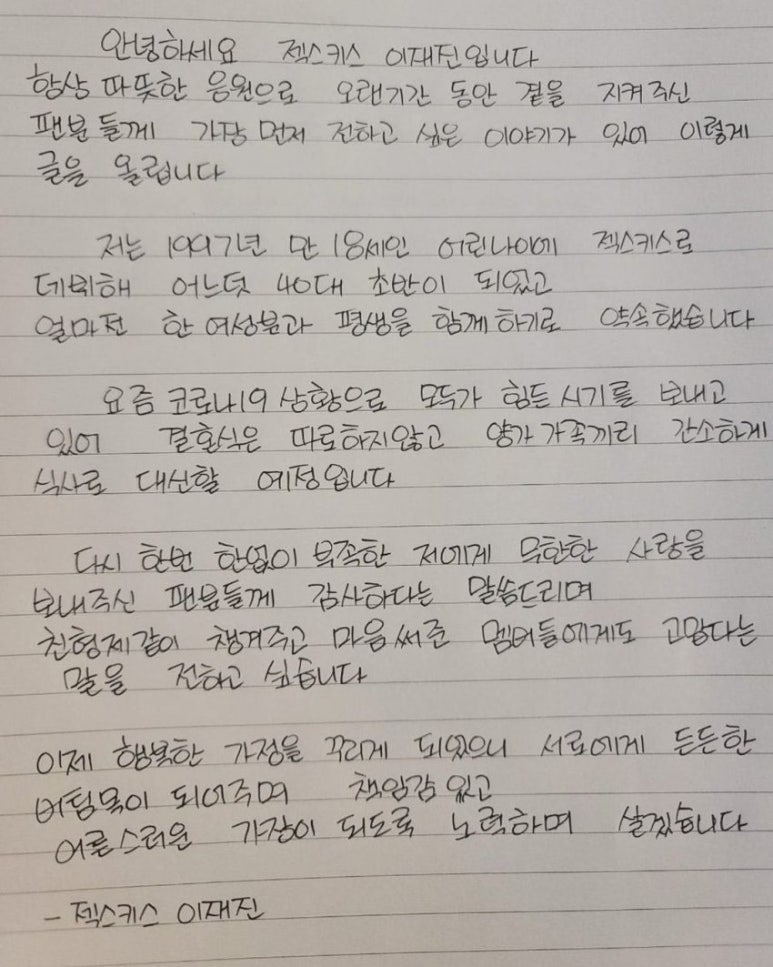 안녕하세요 젝스키스 이재진입니다
항상 따뜻한 응원으로 오랜기간 동안 곁을 지켜주신
팬분들께 가장 먼저 전하고 싶은 이야기가 있어 이렇게
글을 올립니다
저는 1997년 만 18세인 어린나이에 젝스키스로
데뷔해 어느덧 40대 초반이 되었고
얼마전 한 여성분과 평생을 함께하기로 약속했습니다
요즘 코로나19 상황으로 모두가 힘든 시기를 보내고
있어 결혼식은 따로하지않고 양가 가족끼리 간소하게
식사로 대신할 예정입니다
다시 한번 한없이 부족한 저에게 무한한 사랑을
보내주신 팬분들께 감사하다는 말씀드리며
친형제같이 챙겨주고 마음써준 멤버들에게도 고맙다는
말을 전하고 싶습니다
이제 행복한 가정을 꾸리게 되었으니 서로에게 든든한
버팀목이 되어주며 책임감있고
어른스러운 가장이 되도록 노력하며 살겠습니다
- 젝스키스 이재진